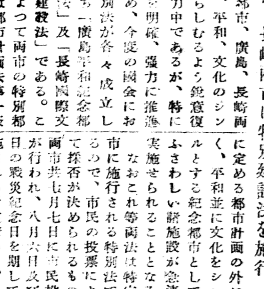 長崎両市に特別建設法を施行
都市、廣島、長崎両
平和、文化のシン
らしむるよう鋭意復
力中であるが、特に
を明確、強力に推進
め、今度の國会にお
別法が各々成立し
ち「廣島平和記念都
法」及「長崎國際文
建設法」である。こ
よつて両市の特別都
に定める都市計画の外
く、平和並に文化をシン
ルとする紀念都市として
ふさわしい諸施設が急速
実施せられることとなる
なおこれ等両法は特定
市に施行される特別法で
るので、市民の投票によ
て採否が決められるもの
両市共七月七日に市民投
が行われ、八月六日及
日の戰災紀念日を期して